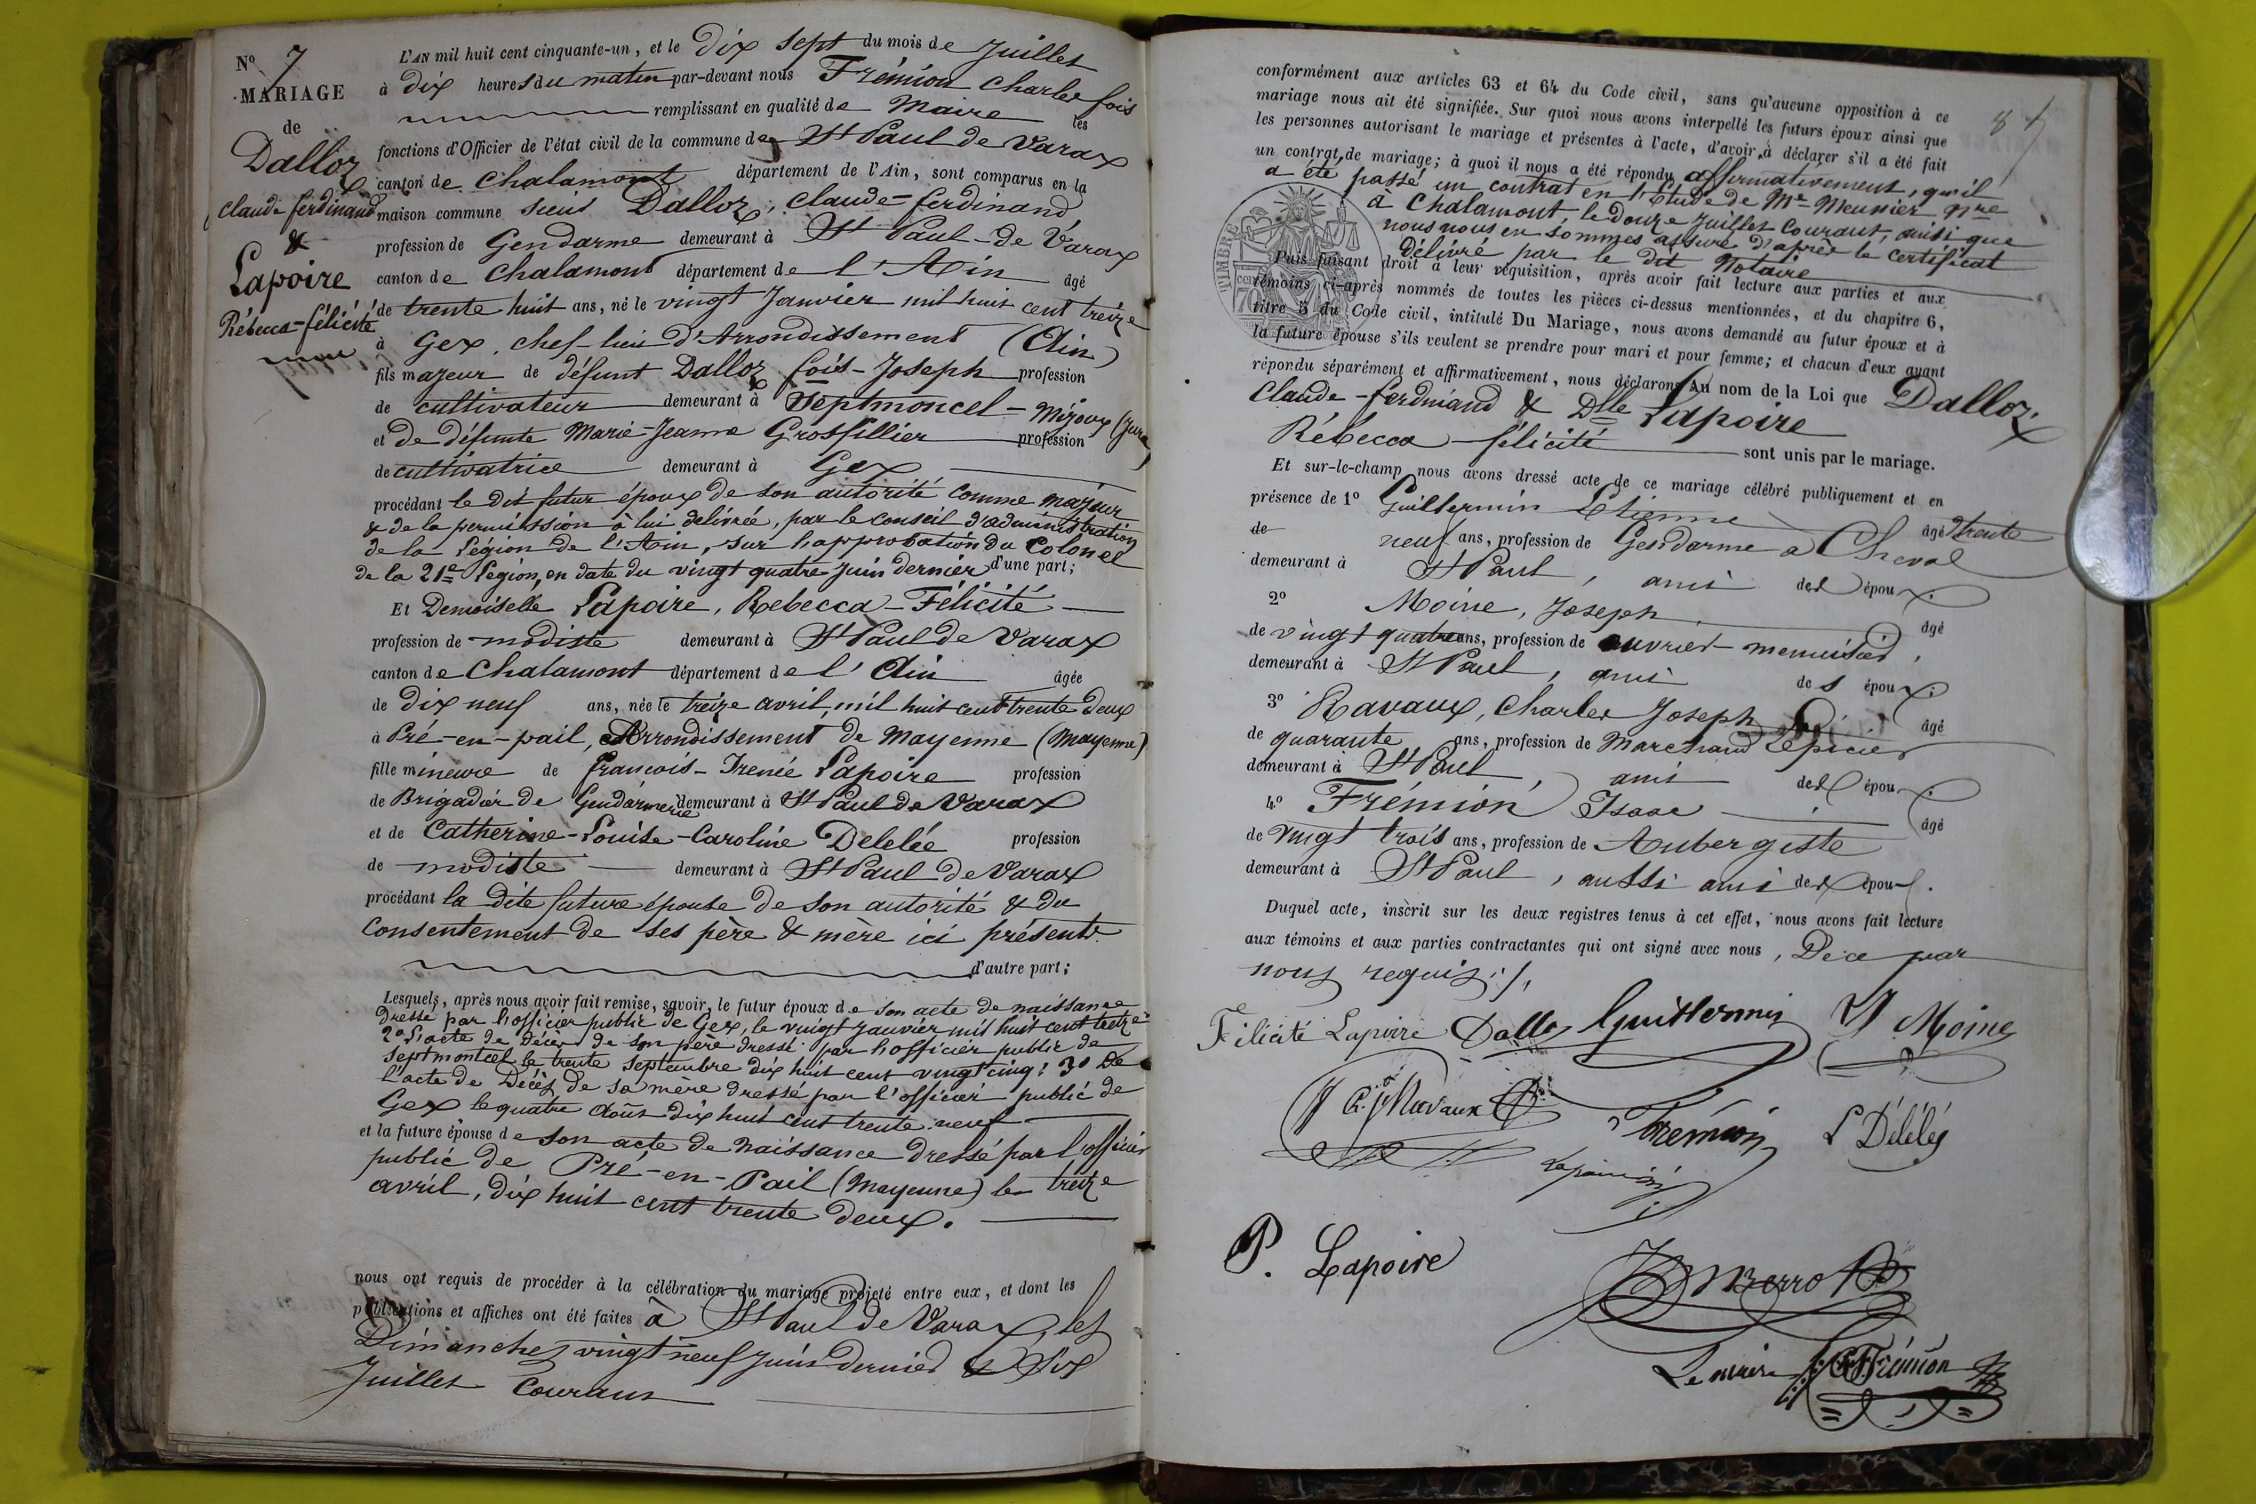 N° 7
MARIAGE
de
Dalloz
Claude-ferdinand
&
Lapoire
Rébecca-félicité
L'AN mil huit cent cinquante-un, et le dix sept du mois de Juillet
à dix heures du matin par-devant nous Frémion Charles fois
remplissant en qualité de Maire les
fonctions d'Officier de l'état civil de la commune de St Paul de Varax
canton de Chalamont département de l'Ain, sont comparus en la
maison commune sieur Dalloz, Claude-ferdinand
profession de Gendarme demeurant à St Paul-de Varax
canton de Chalamont département de l'Ain âgé
de trente huit ans, né le vingt Janvier mil huit cent treize
à Gex, chef-lieu d'Arrondissement (Ain)
fils majeur de défunt Dalloz fois-Joseph profession
de cultivateur demeurant à Septmoncel - Mijoux (Jura)
et de défunte Marie-Jeanne Grosfillier profession
de cultivatrice demeurant à Gex
procédant le dit futur époux de son autorité comme majeur
& de la permission à lui délivrée, par le conseil d'administration
de la Légion de l'Ain, sur l'approbation du Colonel
de la 21e Légion, en date du vingt quatre Juin dernier d'une part;
Et Demoiselle Lapoire, Rebecca-Félicité
profession de modiste demeurant à St Paul de Varax
canton de Chalamont département de l'Ain âgée
de dix neuf ans, née le treize avril, mil huit cent trente deux
à Pré-en-pail, Arrondissement de Mayenne (Mayenne)
fille mineure de francois-Irenée Lapoire profession
de Brigadier de Gendarmerie demeurant à St Paul de Varax
et de Catherine-Louise-Caroline Delelée profession
de modiste demeurant à St Paul de Varax
procédant la dite future épouse de son autorité & du
consentement de ses père & mère ici présents
d'autre part;
Lesquels, après nous avoir fait remise, savoir, le futur époux de son acte de naissance
dressé par l'officier public de Gex, le vingt janvier mil huit cent treize
2° l'acte de décès de son père dressé par l'officier public de
Septmontcel le trente septembre dix huit cent vingt cinq; 3° De
l'acte de Décès de sa mère dressé par l'officier public de
Gex le quatre août dix huit cent trente neuf
et la future épouse de son acte de naissance dressé par l'officier
public de Pré-en-Pail (Mayenne) le treize
avril, dix huit cent trente deux.
nous ont requis de procéder à la célébration du mariage projeté entre eux, et dont les
publications et affiches ont été faites à St Paul de Varax, les
Dimanches vingt neuf Juin dernier & Six
Juillet Courant
conformément aux articles 63 et 64 du Code civil, sans qu'aucune opposition à ce
mariage nous ait été signifiée. Sur quoi nous avons interpellé les futurs époux ainsi que
les personnes autorisant le mariage et présentes à l'acte, d'avoir à déclarer s'il a été fait
un contrat de mariage; à quoi il nous a été répondu affirmativement, qu'il
a été passé un contrat en l'Étude de Me Meunier Nre
à Chalamont, le douze Juillet Courant, ainsi que
nous nous en sommes assuré d'après le certificat
délivré par le dit Notaire
TIMBRE
70
Puis faisant droit à leur réquisition, après avoir fait lecture aux parties et aux
témoins ci-après nommés de toutes les pièces ci-dessus mentionnées, et du chapitre 6,
titre 5 du Code civil, intitulé Du Mariage, nous avons demandé au futur époux et à
la future épouse s'ils veulent se prendre pour mari et pour femme; et chacun d'eux ayant
répondu séparément et affirmativement, nous déclarons Au nom de la Loi que Dalloz
Claude-ferdinand & Dlle Lapoire
Rébecca-félicité sont unis par le mariage.
Et sur-le-champ nous avons dressé acte de ce mariage célébré publiquement et en
présence de 1° Guillermin Etienne âgé trente
de neuf ans, profession de Gendarme a Cheval
demeurant à St Paul, ami des époux.
2° Moine, Joseph âgé
de vingt quatre ans, profession de ouvrier menuisier,
demeurant à St Paul, ami des époux.
3° Ravaux, Charles Joseph âgé
de quarante ans, profession de Marchand Epicier
demeurant à St Paul, ami des époux.
4° Frémion Isaac âgé
de vingt trois ans, profession de Aubergiste
demeurant à St Paul, aussi ami des époux.
Duquel acte, inscrit sur les deux registres tenus à cet effet, nous avons fait lecture
aux témoins et aux parties contractantes qui ont signé avec nous, De ce par
nous requis ./.
Félicité Lapoire Dalloz Guillermin J Moine
C. J. Ravaux Frémion L Délélée
Lapoire
P. Lapoire
Berrot
Le maire C Frémion